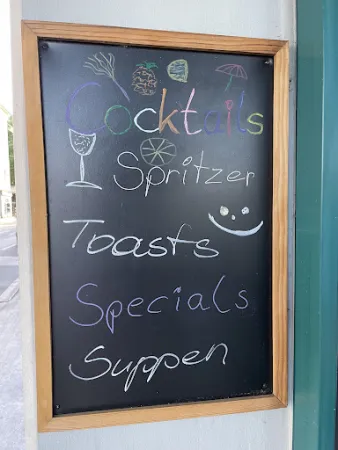 Cocktails
Spritzer
Toasts
Specials
Suppen